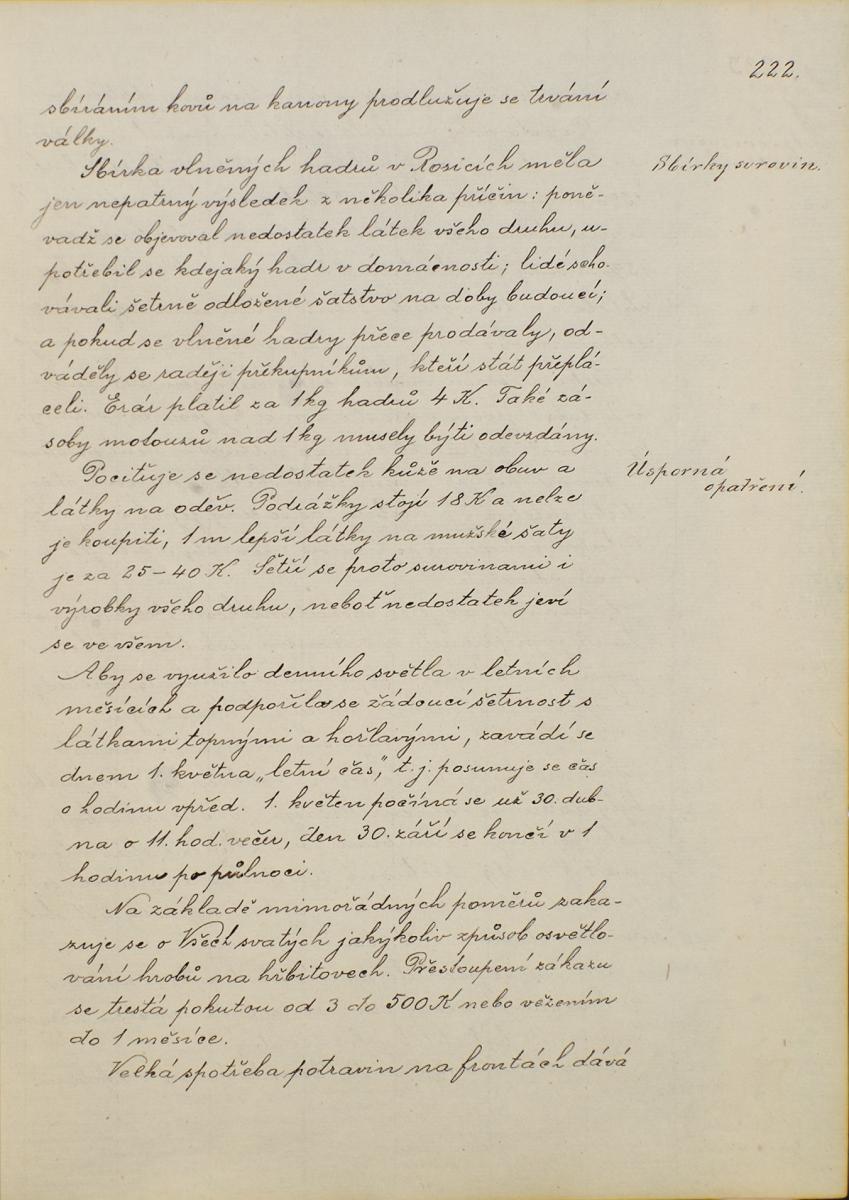 222.
sbíráním kovů na kanony prodlužuje se trvání
války.
Sbírky surovin.
Sbírka vlněných hadrů v Rosicích měla
jen nepatrný výsledek z několika příčin: poně-
vadž se objevoval nedostatek látek všeho druhu, u-
potřebil se kdejaký hadr v domácnosti; lidé scho-
vávali šetrně odložené šatstvo na doby budoucí;
a pokud se vlněné hadry přece prodávaly, od-
váděly se raději překupníkům, kteří stát přeplá-
celi. Erár platil za 1 kg hadrů 4 K. Také zá-
soby motouzů nad 1 kg musely býti odevzdány.
Úsporná
opatření.
Pociťuje se nedostatek kůže na obuv a
látky na oděv. Podrážky stojí 18 K a nelze
je koupiti, 1 m lepší látky na mužské šaty
je za 25 – 40 K. Šetří se proto surovinami i
výrobky všeho druhu, neboť nedostatek jeví
se ve všem.
Aby se využilo denního světla v letních
měsících a podpořila se žádoucí šetrnost s
látkami topnými a hořlavými, zavádí se
dnem 1. května „letní čas", t. j. posunuje se čas
o hodinu vpřed. 1. květen počíná se už 30. dub-
na o 11. hod. večer, den 30. září se končí v 1
hodinu po půlnoci.
Na základě mimořádných poměrů zaka-
zuje se o Všech svatých jakýkoliv způsob osvětlo-
vání hrobů na hřbitovech. Přestoupení zákazu
se trestá pokutou od 3 do 500 K nebo vězením
do 1 měsíce.
Velká spotřeba potravin na frontách dává